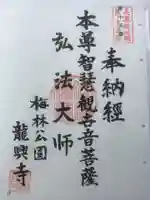 奉納經
本尊智琵觀古音菩薩
弘法大师
梅林公園
龍興寺